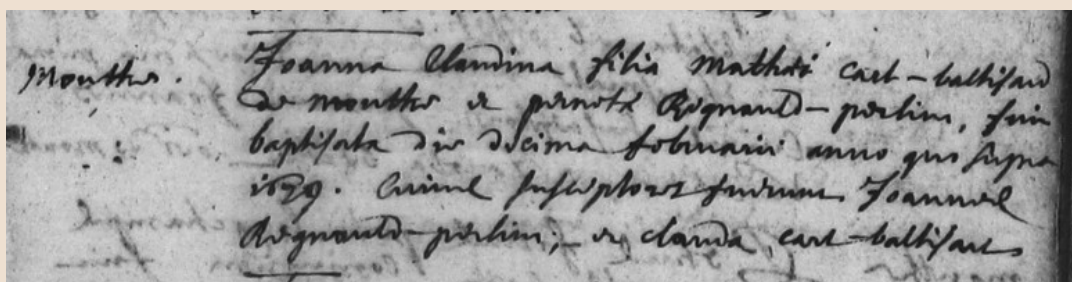 Mouthe. Joanna Claudina filia Mathei cart-baltisard
de mouthe et pernotê Regnauld-perlin, fuit
baptisata die decima februarii anno quo supra
1659. Cuius susceptores fuerunt Joannes
Regnauld-perlin; et clauda cart-baltisart